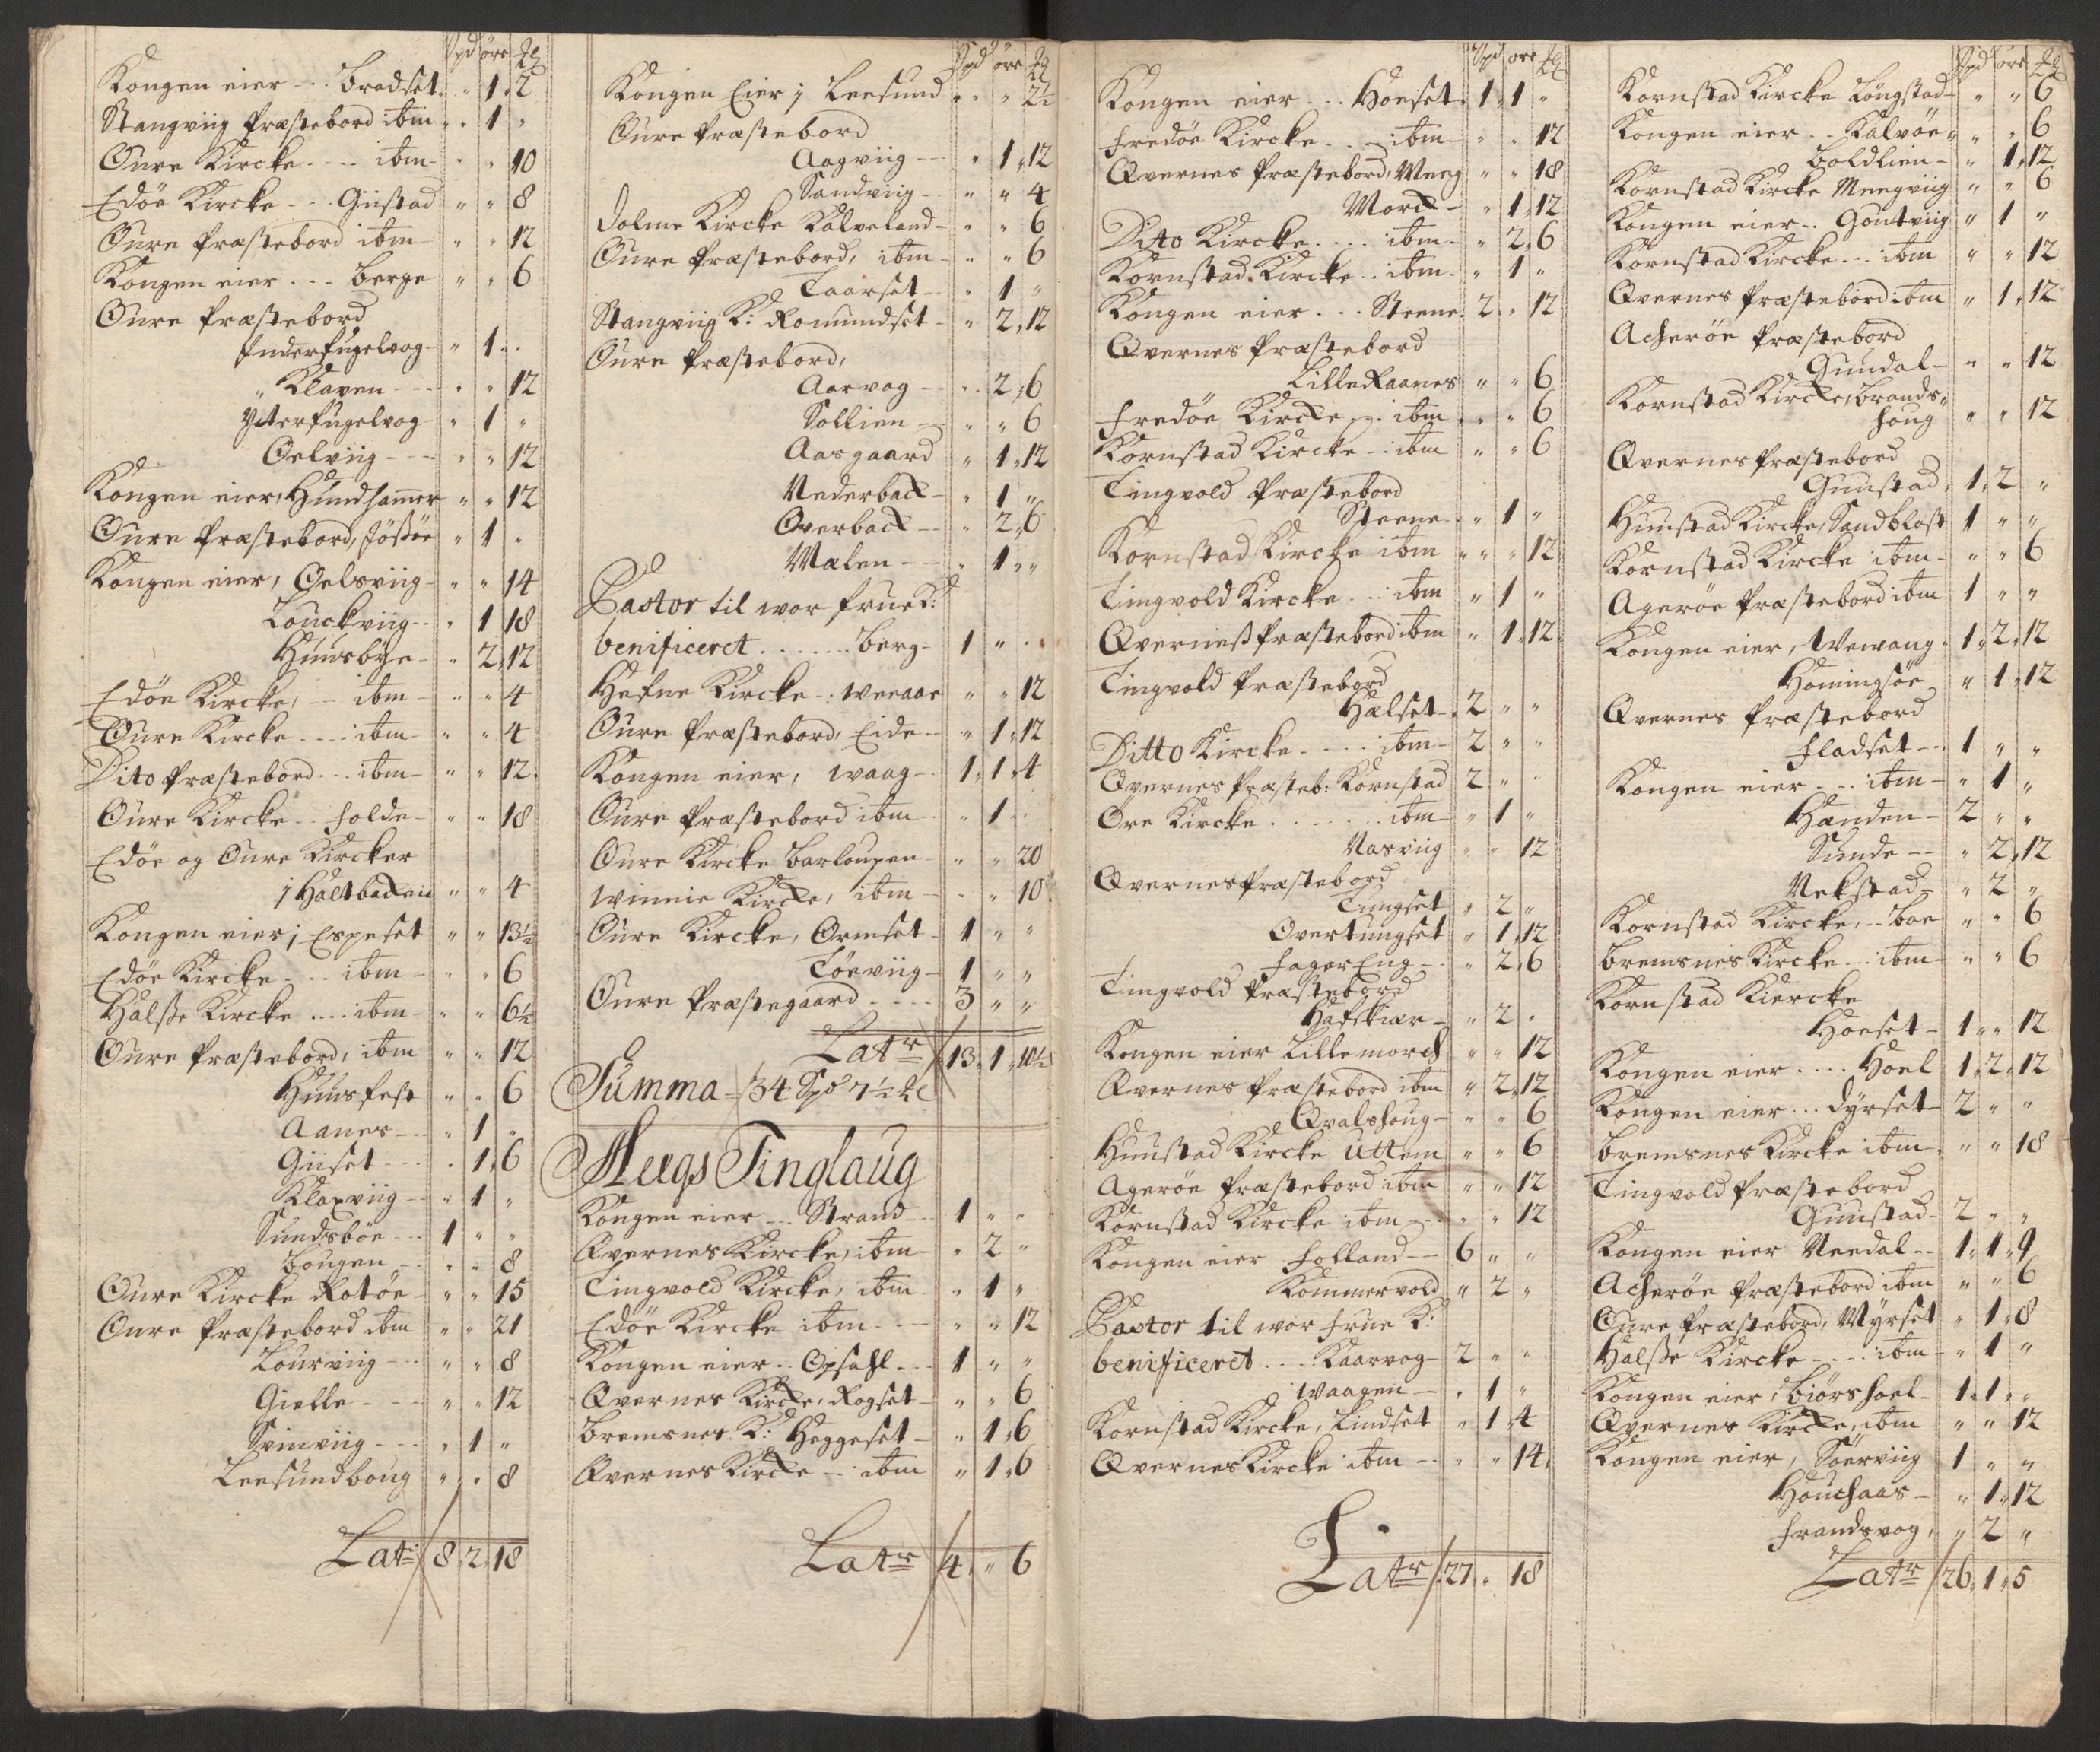 Spd øre
Kongen eier - - . Brodset. „ 1. 2
Stangviig Præstebord ibm „ 1 „
Oure Kircke - - - . ibm - „ „ 10
Edøe Kircke - - . Giistad „ „ 8
Oure Præstebord ibm - „ „ 12
Kongen eier - . . Berge „ „ 6
Oure Præstebord
Inderfugelvog - „ 1 . .
Klaven - - - „ „ 12
Ytterfugelvog - „ 1 „
Oelviig - - - „ „ 12
Kongen eier, Hundhamer „ „ 12
Oure Præstebord, Jøssøe „ 1 „
Kongen eier, Oelsviig - „ „ 14
Louckviig - - „ 1 18
Huusbye - „ 2„12
Edøe Kircke, - - ibm - „ „ 4
Oure Kircke - - . ibm - „ „ 4
Dito Præstebord . . . ibm - „ „ 12.
Oure Kircke - . Folde - „ „ 18
Edøe og Oure Kircker
j Haltbacken „ „ 4
Kongen eier j Espeset „ „ 13½
Edøe Kircke - . . ibm - „ „ 6
Halsse Kircke . . . . ibm - „ „ 6½
Oure Præstebord, ibm „ „ 12
Huusfest „ „ 6
Aanes - - „ 1 „
Giiset - - - . 1„6
Kloxviig - - „ 1 „
Sundsbøe - - 1 „ „
Bougen - - „ „ 8
Oure Kircke Rotøe - „ „ 15
Oure Præstebord ibm „ „ 21
Lourviig - - „ „ 8
Gielle - - - „ „ 12
Sviinviig - - - „ 1 „
Leesundboug „ „ 8
Latr 8„2„18
Spd øre
Kongen Eier j Leesund „ „ 2½
Oure Præstebord
Aagviig - - „ 1„12
Sandviig - „ „ 4
Dolme Kircke Kalveland - „ „ 6
Oure Præstebord, ibm - „ „ 6
Taarset - „ 1 „
Stangviig K: Romundset - „ 2„12
Oure Præstebord,
Aarvog - - „ 2„6
Sollien - „ „ 6
Aasgaard „ 1„12
Nederback - „ 1 „
Overback - - „ 2„6
Mælen - - „ 1 „ „
Pastor til vor Frue K:
benificeret . . . . . . . Berg - 1 „ „
Hefne Kircke - : Weraas „ „ 12
Oure Præstebord, Eide - „ 1„12
Kongen eier, Waag - . 1„1„4
Oure Præstebord ibm - „ 1 „
Oure Kircke Barloupen - „ „ 20
Winnie Kircke, ibm - „ „ 10
Oure Kircke, Ormset - 1 „ „
Tøeviig - 1 „ „
Oure Præstegaard - - - - 3 „ „
Latr 13„1„10½
Summa - 34 Spd 7½
Meegs Tinglaug
Kongen eier - - . Strand - - 1 „ „
Qvernes Kircke, ibm - „ 2 „
Tingvold Kircke, ibm - „ 1 „
Edøe Kircke ibm - - - „ „ 12
Kongen eier . . Opsahl - - - 1 „ „
Qvernes Kircke, Rogset - „ „ 6
Bremsnes K: Heggeset - „ 1„6
Qvernes Kircke - - ibm „ 1„6
Latr 4„ „ 6
Spd øre
Kongen eier . . . Honset - 1„1 „
Fredøe Kircke - . . - ibm - „ „ 12
Qvernes Præstebord, Meeg „ „ 18
Morck - „ 1„12
Dito Kircke . . . . ibm - „ 2„6
Kornstad Kircke . . ibm - „ 1 „
Kongen eier . . . Steene. 2„ „ 12
Qvernes Præstebord
Lille Raanes „ „ 6
Fredøe Kircke - . . ibm „ „ 6
Kornstad Kircke - : ibm „ „ 6
Tingvold Præstebord
Steene - „ 1 „
Kornstad Kircke ibm „ „ 12
Tingvold Kircke . . : ibm „ 1 „
Qverness Præstebord ibm „ 1„12.
Tingvold Præstebord
Hælset - 2 „ „
Ditto Kircke - - . . ibm - 2 „ „
Qvernes Præsteb: Kornstad 2 „ „
Øre Kircke . . . . . . . ibm - „ 1 „
Nasviig „ „ 12
Qvernes Præstebord
Tungset „ 2 „
Overtungset „ 1„12
FagerEng - - „ 2„6
Tingvold Præstebord
Hafskiær - „ 2 „
Kongen eier Lillemorch „ „ 12
Qvernes Præstebord ibm „ 2„12
Qvalshoug - „ „ 6
Huustad Kircke Uttem „ „ 6
Agerøe Præstebord ibm „ „ 12
Kornstad Kircke ibm - - „ „ 12
Kongen eier Folland - - 6 „ „
Kommervold „ 2 „
Pastor til vor Frue K:
benificeret . . . : Kaarvog - 2 „ „
Waagen - - „ 1 „
Kornstad Kircke, Lindset „ 1„4
Qvernes Kircke ibm - - „ „ 14.
Latr 27„ „ 18
Spd øre
Kornstad Kircke Longstad - „ „ 6
Kongen eier . . . Kalvøe „ „ „ 6
Boldlien - „ 1„12
Kornstad Kircke Meegviig „ „ 6
Kongen eier . . Goutviig „ 1 „
Kornstad Kircke . . . ibm „ „ 12
Qvernes Præstebord ibm „ 1„12
Acherøe Præstebord
Guudal - „ „ 12
Kornstad Kircke, Brands„
houg „ „ 12
Qvernes Præstebord
Guustad „ 1„2 „
Huustad Kircke, Sandblost 1 „ „
Kornstad Kircke ibm - „ „ 6
Agerøe Præstebord ibm 1 „ „
Kongen eier, Wevang - 1„2„12
Homingsøe „ 1„12
Qvernes Præstebord
Fladset - - 1 „ „
Kongen eier - . . ibm - „ 1 „
Hænden - 2 „ „
Sunde - - „ 2„12
Nekstad - „ 2 „
Kornstad Kircke, - - Boe „ „ 6
Bremsnes Kircke . . . ibm - „ „ 6
Kornstad Kiercke
Honset - 1„ „ 12
Kongen eier . . . . Hoel 1„2„12
Kongen eier . . . Dyrset - 2 „ „
Bremsnes Kircke ibm - „ „ 18
Tingvold Præstebord
Guustad - 2 „ „
Kongen eier Needal - - 1„1„9
Acherøe Præstebord ibm „ „ 6
Oure Præstebord, Myrset „ 1„8
Halsse Kircke - . - . ibm - „ 1 „
Kongen eier, Biørshoel - 1„1 „
Qvernes Kircke, ibm „ „ 12
Kongen eier, Søerviig 1 „ „
Houchaas - „ 1„12
Frandsvog, „ 2 „
Latr 26„1„5